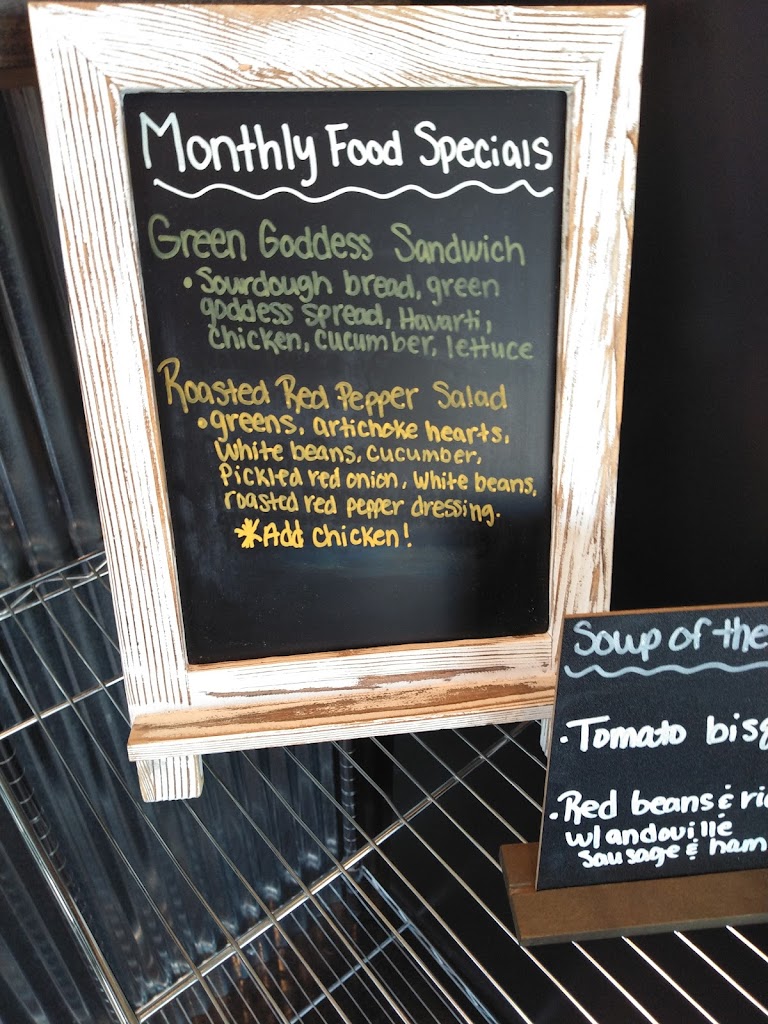 Monthly Food Specials
Green Goddess Sandwich
• Sourdough bread, green
goddess spread, Havarti,
chicken, cucumber, lettuce
Roasted Red Pepper Salad
• greens, artichoke hearts,
white beans, cucumber,
Pickled red onion, white beans,
roasted red pepper dressing.
*Add chicken!
Soup of the
• Tomato
• Red beans &
w/ andouille
sausage & ham